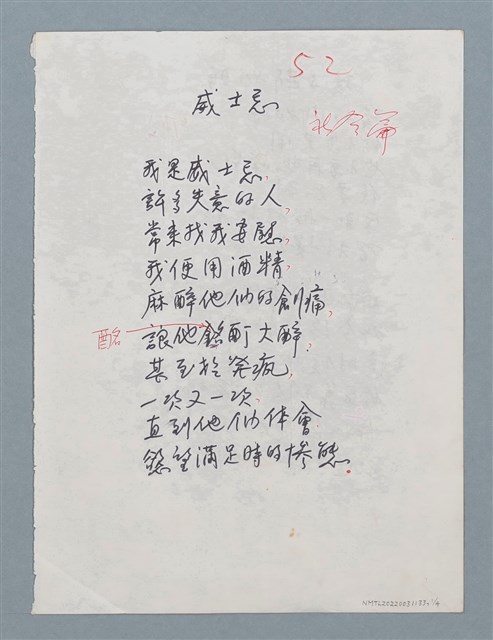 52
威士忌
社会篇
我是威士忌,
許多失意的人,
常来找我安慰,
我便用酒精,
麻醉他们的創痛,
酩
讓他銘酊大醉,
甚至於発疯,
一次又一次,
直到他们体會
慾望满足時的惨態.
NMTL20220031183